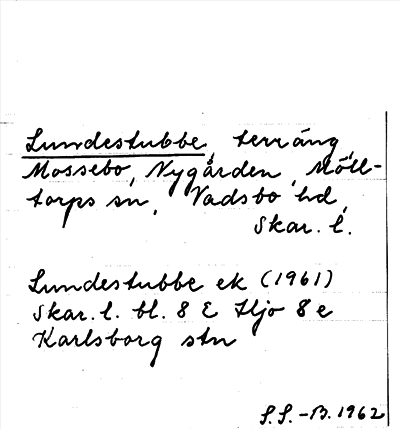 Lundestubbe, terräng,
Mossebo, Nygården, Möll-
torps sn, Vadsbo hd,
Skar. l.
Lundestubbe ek (1961)
Skar. l. bl. 8 E Hjo 8 e
Karlsborg stn
S.S.-B. 1962